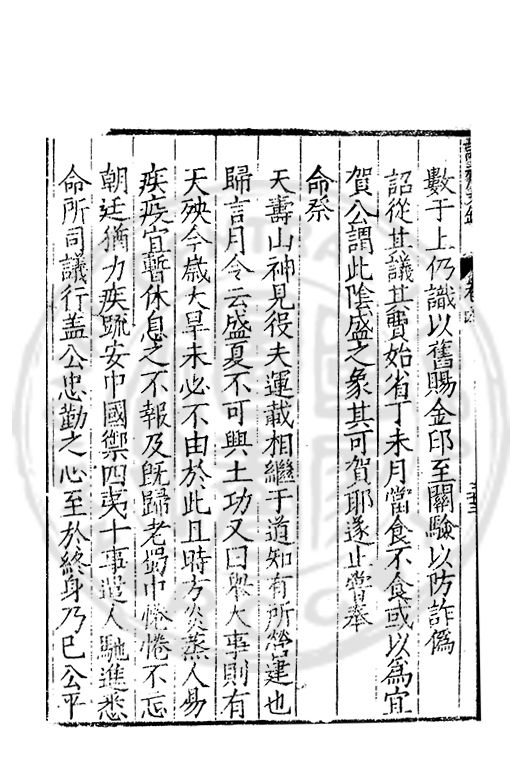 數于上仍識以舊賜金印至關驗以防詐偽
詔從其議其費始省丁未月當食不食或以為宜
賀公謂此陰盛之象其可賀耶遂止嘗奉
命祭
天壽山神見役夫運載相繼于道知有所營建也
歸言月令云盛夏不可興土功又曰舉大事則有
天殃今歲大旱未必不由於此且時方炎蒸人易
疾疫宜暫休息之不報及既歸老場巾惓惓不忘
朝廷猶力疾疏安中國禦四夷十事遣人馳進悉
命所司議行盖公忠勤之心至於終身乃已公平